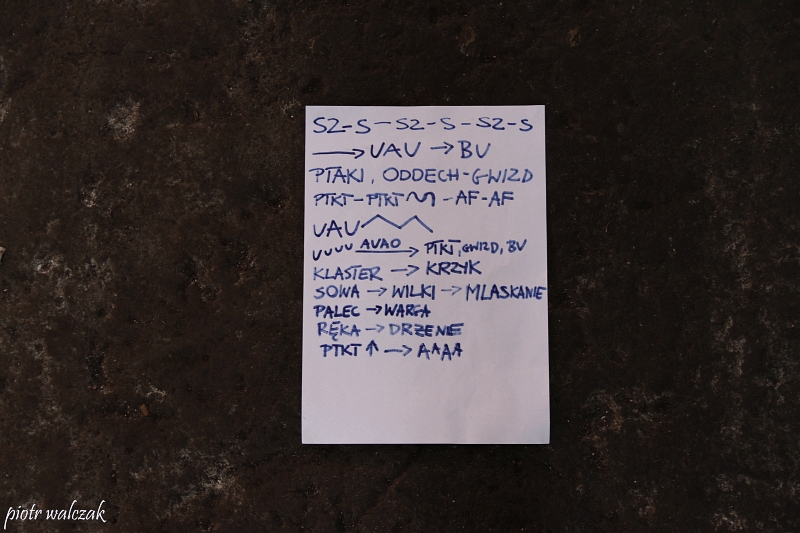 SZ-S-SZ-S-SZ-S
→ UAU → BU
PTAKI, ODDECH-GWIZD
PTKT-PTKT -AF-AF
UAU
UUUU AUAO → PTKT, GWIZD, BU
KLASTER → KRZYK
SOWA → WILKI → MLASKANIE
PALEC → WARGA
RĘKA → DRŻENIE
PTKT ↑ → AAAA
piotr walczak